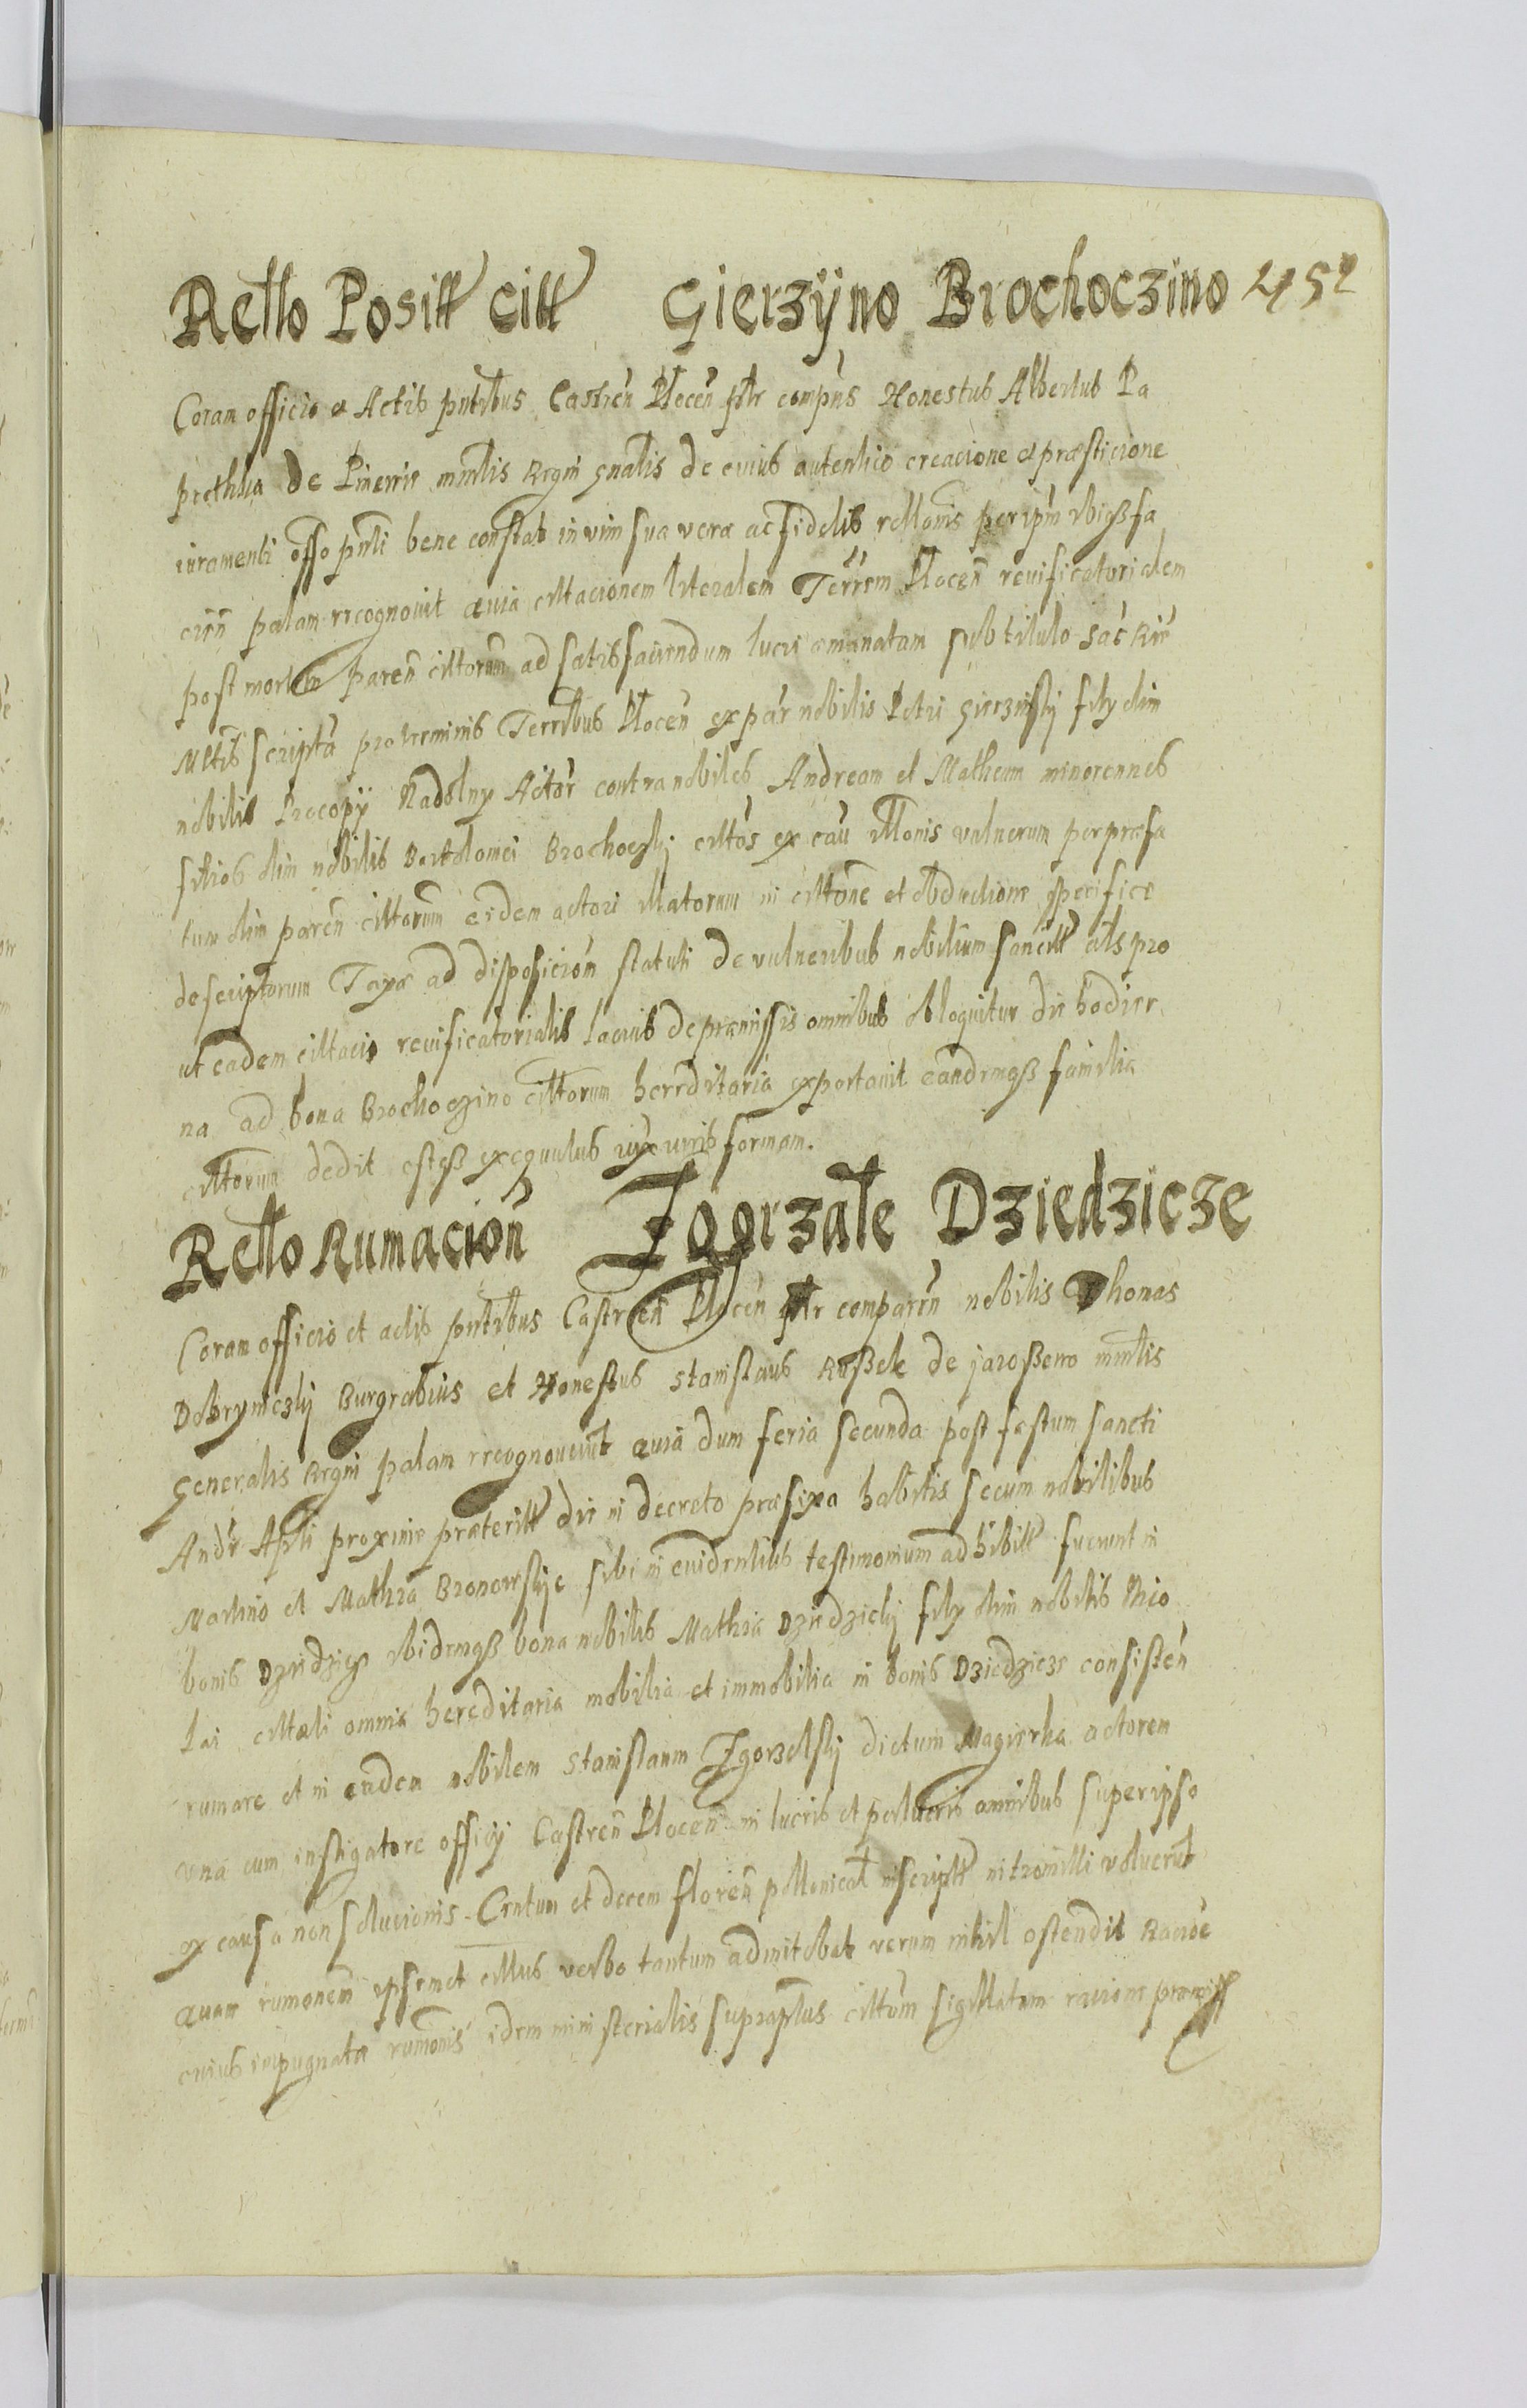 Rello Positt citt Gierzÿno Brochoczino 452
Coram officio et Actis pntibus Castren Plocen pltr compns Honestus Albertus Pa
prethka de Pinewie mnlis Regni gnalis de cuius autentico creacione et præsticione
iuramenti offo pnti bene constat in vim sua vera ac fidelis rellonis per ipm ibiqß fa
cien palam recognovit quia cittacionem literalem Terrem Plocen reuificatorialem
post mortem paren cittorum ad satisfaciendum lucri emanatam sub titulo sac Rie
Mtis scripta pro terminis Terribus Plocen ex par nobilis Petri Gierzinskÿ filÿ olim
nobilis Procopÿ Nadolnÿ Actor contra nobiles Andream et Matheum minorennes
filios olim nobilis Bartolomei Brochoczkÿ cittos ex cau illonis vulnerum per præfa
tum olim paren cittorum eidem actori illatorum in cittone et obductione specifice
descriptorum Taxæ ad disposicion statuti de vulneribus nobilium sancitt als pro
ut eadem cittacio reuificatorialis lacius de præmissis omnibus obloquitur die hodier
na ad bona Brochoczino cittorum hereditaria exportavit eandemqß familia
cittorum dedit estqß exequutus iux iuris formam.
Rello Rumacion Zgorzałe Dziedzicze
Coram officio et actis pntibus Castren Plocen pltr comparen nobilis Thomas
Dobrzyniczkÿ Burgrabius et Honestus Stanislaus Kußek de Jaroßewo mnlis
Generalis Regni palam recognouerut quia dum feria secunda post festum sancti
Andr Apli proxime præteritt die in decreto præfixa habitis secum nobilibus
Martino et Mathia Bronowskÿe sibi in euidentius testimonium adhibitt fuerunt in
bonis Dziedzicze ibidemqß bona nobilis Mathia Dziedziczkÿ filÿ olim nobilis Nico
lai cittati omnia hereditaria mobilia et immobilia in bonis Dziedzicze consisten
rumare et in eadem nobilem Stanislaum Zgorzelskÿ dictum Magierka actorem
una cum instigatore officÿ Castren Plocen in lucris et perlucris omnibus super ipso
ex causa non solucionis Centum et decem floren pollonicat inscriptt intromitti voluerut
quam rumonem ipsemet cittus verbo tantum admitebat verum nihil ostendit Racione
cuius impugnata rumonis idem ministerialis supraptus cittum sigillatam racione præmiss